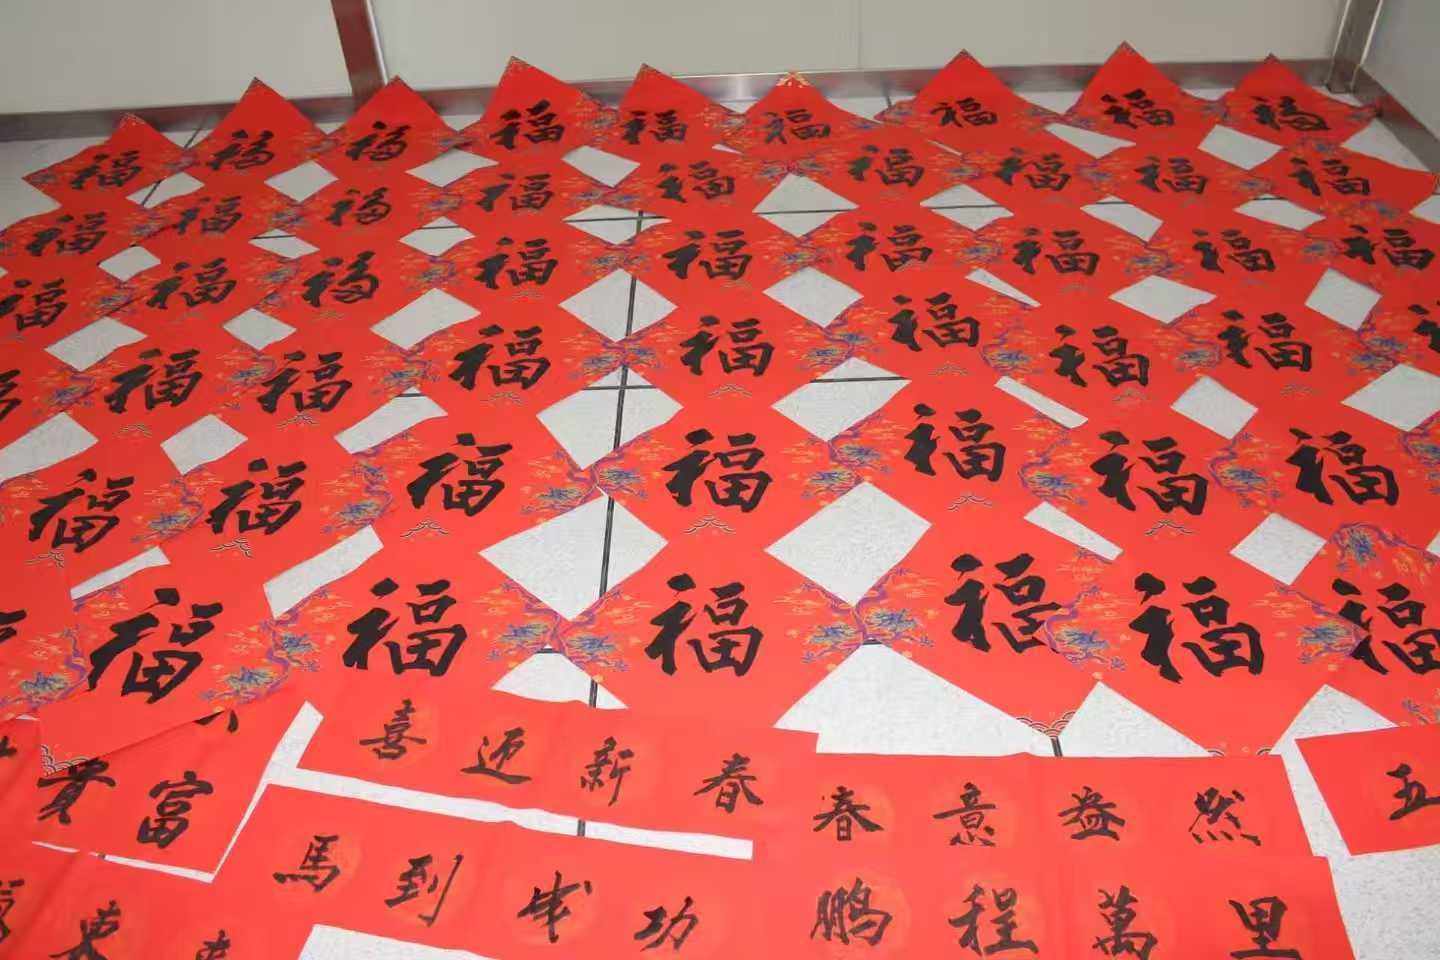 福 福 福 福 福 福 福 福 福
福 福 福 福 福 福 福 福 福
福 福 福 福 福 福 福 福 福
福 福 福 福 福 福 福
福 福 福 福 福 福 福
福 福 福 福 福 福
喜迎新春
貴富
春意盎然
五
馬到成功
鵬程萬里
東